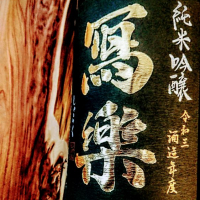 純米吟醸
令和三
酒造年度
冩樂